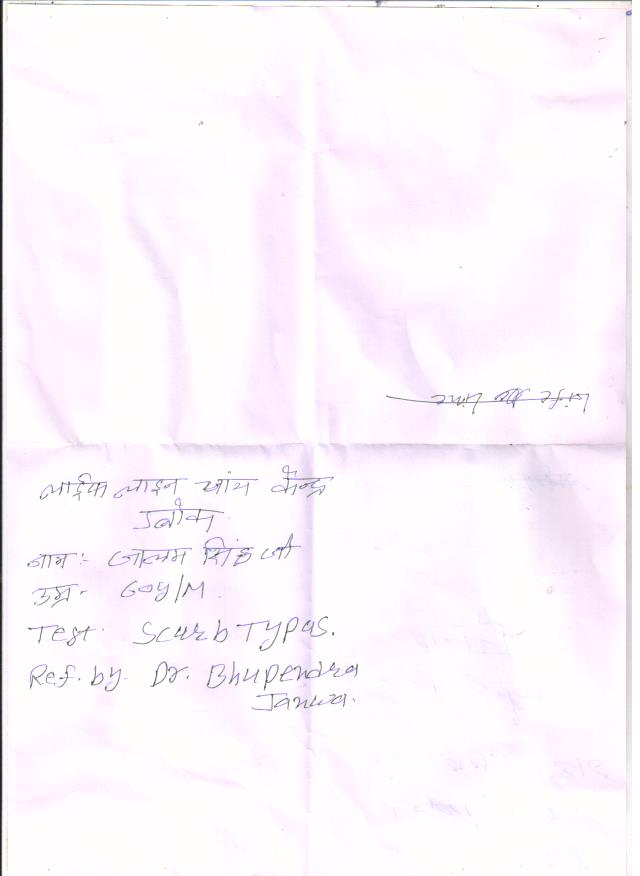 Life Line
लाईफ लाइन जांच केन्द्र
नाम:- जालम सिंह जी
उम्र- 60y/M.
Test- Scurb Typas.
Ref. by. Dr. Bhupendra
Janwa.